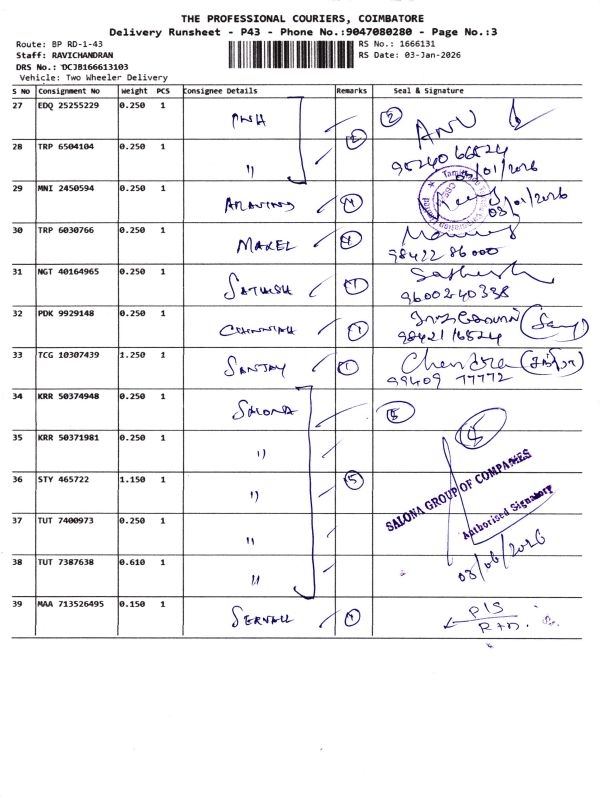 THE PROFESSIONAL COURIERS, COIMBATORE
Delivery Runsheet - P43 - Phone No.:9047080280 - Page No.:3
Route: BP RD-1-43
Staff: RAVICHANDRAN
DRS No.: DCJB166613103
Vehicle: Two Wheeler Delivery
RS No.: 1666131
RS Date: 03-Jan-2026
S No Consignment No Weight PCS Consignee Details Remarks Seal & Signature
27 EDQ 25255229 0.250 1 2 ANU
28 TRP 6504104 0.250 1 " 2 95240 66524
03/01/2026
29 MNI 2450594 0.250 1 ARAVIND 03/01/2026
30 TRP 6030766 0.250 1 MAXEL
98422 86000
31 NGT 40164965 0.250 1 SATHISH 1 Sathish
96002-40338
32 PDK 9929148 0.250 1 1
98421 16524
33 TCG 10307439 1.250 1 SANJAY 1 Chendra
99409 77772
34 KRR 50374948 0.250 1 SALONA 5
35 KRR 50371981 0.250 1 "
36 STY 465722 1.150 1 " 5 SALONA GROUP OF COMPANIES
37 TUT 7400973 0.250 1 " Authorised Signatory
38 TUT 7387638 0.610 1 "
39 MAA 713526495 0.150 1 1 P/S